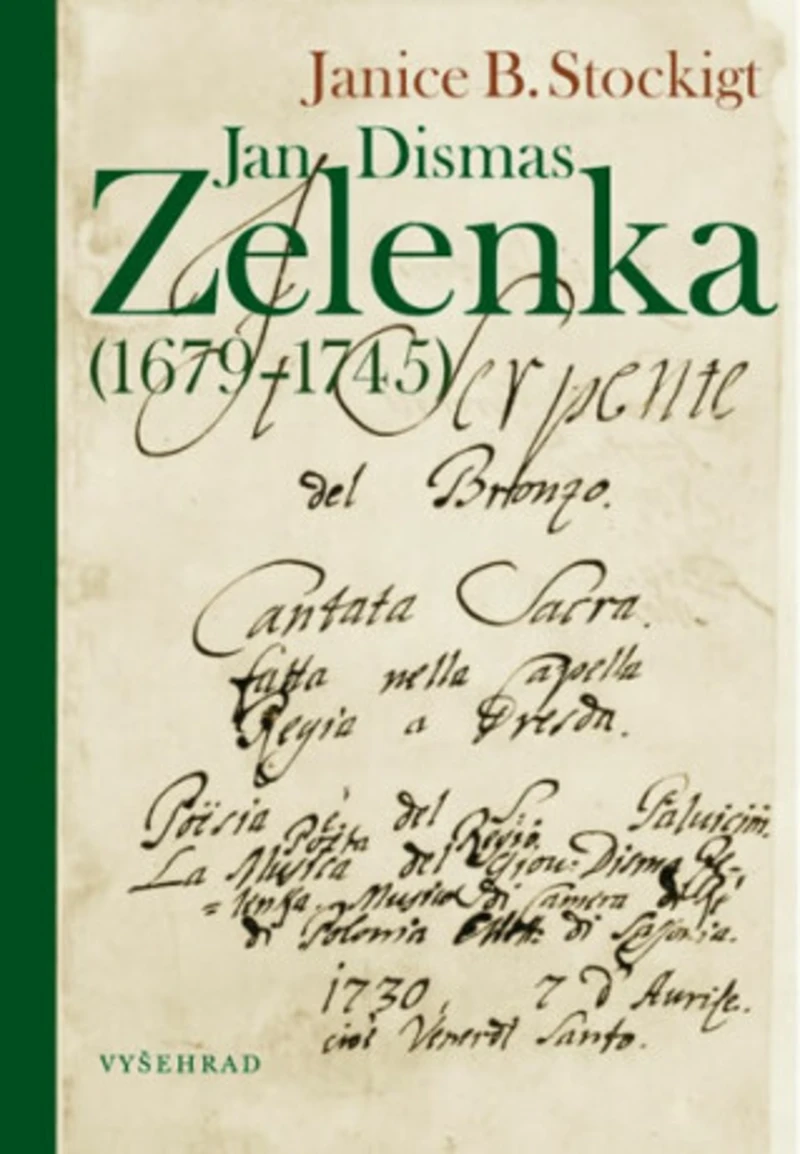 Janice B. Stockigt
Jan Dismas
Zelenka
(1679–1745)
Il Serpente
del Bronzo.
Cantata Sacra.
fatta nella Capella
Regia a Dresda.
Poësia è del S: Paluicini.
Poeta Regio.
La Musica del Giou: Disma Ze-
=lenka Musico di Camera
di Polonia di Sassonia.
1730, 7 d'Aurile.
cioè Venerdì Santo.
VYŠEHRAD